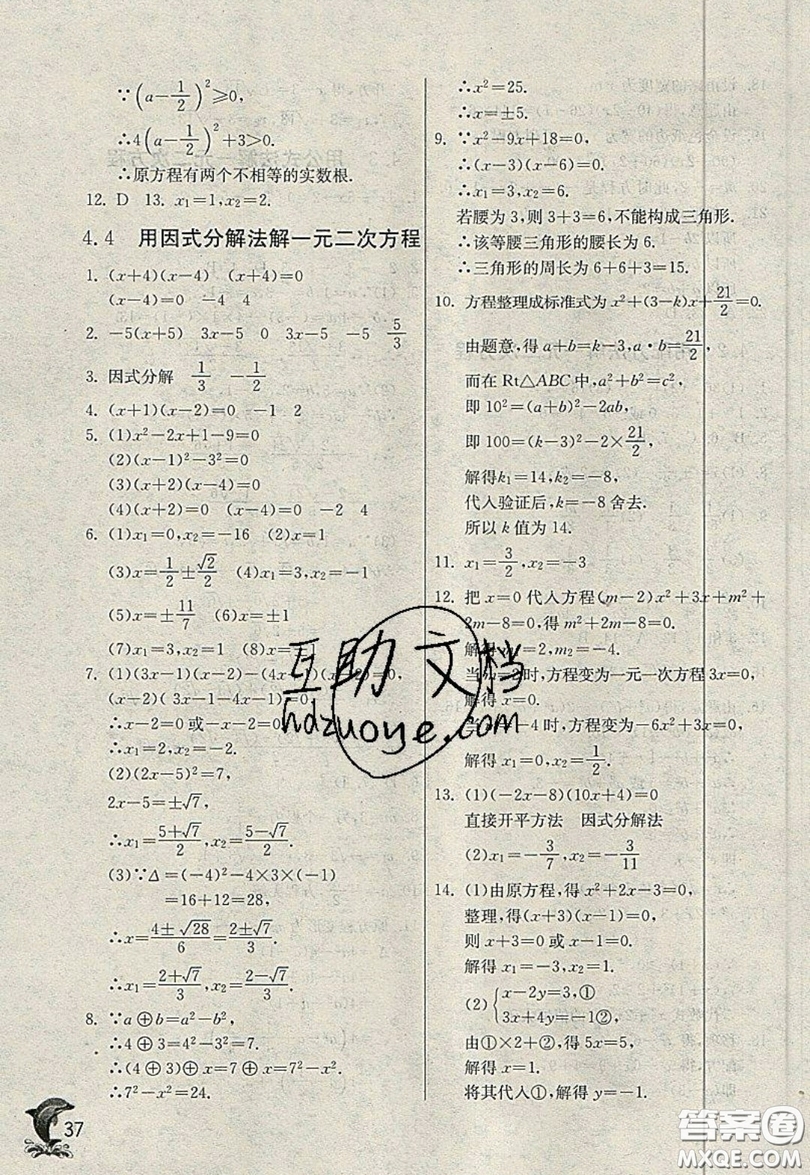 ∵(a-1/2)²≥0,
∴4(a-1/2)²+3>0.
∴原方程有两个不相等的实数根.
12. D 13. x₁=1,x₂=2.
4.4 用因式分解法解一元二次方程
1. (x+4)(x-4) (x+4)=0
(x-4)=0 -4 4
2. -5(x+5) 3x-5 0 3x-5 -5 5/3
3. 因式分解 1/3 -1/2
4. (x+1)(x-2)=0 -1 2
5. (1)x²-2x+1-9=0
(2)(x-1)²-3²=0
(3)(x+2)(x-4)=0
(4)(x+2)=0 (x-4)=0 -2 4
6. (1)x₁=0,x₂=-16 (2)x=1
(3)x=1/2±√2/2 (4)x₁=3,x₂=9
(5)x=±11/7 (6)x=±1
(7)x₁=3,x₂=1 (8)x=3
7. (1)(3x-1)(x-2)-(4x+1)(x-2)=0,
(x-2)(3x-1-4x-1)=0
∴x-2=0或-x-2=0,
∴x₁=2,x₂=-2.
(2)(2x-5)²=7,
2x-5=±√7,
∴x₁=(5+√7)/2,x₂=(5-√7)/2.
(3)∵Δ=(-4)²-4×3×(-1)
=16+12=28,
∴x=(4±√28)/6=(2±√7)/3,
∴x₁=(2+√7)/3,x₂=(2-√7)/3.
8. ∵a⊕b=a²-b²,
∴4⊕3=4²-3²=7.
∴(4⊕3)⊕x=7⊕x=7²-x².
∴7²-x²=24.
37
∴x²=25.
∴x=±5.
9. ∵x²-9x+18=0,
∴(x-3)(x-6)=0.
∴x₁=3,x₂=6.
若腰为3,则3+3=6,不能构成三角形.
∴该等腰三角形的腰长为6.
∴三角形的周长为6+6+3=15.
10. 方程整理成标准式为x²+(3-k)x+21/2=0.
由题意,得a+b=k-3,a·b=21/2,
而在Rt△ABC中,a²+b²=c²,
即10²=(a+b)²-2ab,
即100=(k-3)²-2×21/2,
解得k₁=14,k₂=-8,
代入验证后,k=-8舍去.
所以k值为14.
11. x₁=3/2,x₂=-3
12. 把x=0代入方程(m-2)x²+3x+m²+
2m-8=0,得m²+2m-8=0.
解得m₁=2,m₂=-4.
当m=2时,方程变为一元一次方程3x=0,
解得x=0.
当m=-4时,方程变为-6x²+3x=0,
解得x₁=0,x₂=1/2.
13. (1)(-2x-8)(10x+4)=0
直接开平方法 因式分解法
(2)x₁=-3/7,x₂=-3/11
14. (1)由原方程,得x²+2x-3=0,
整理,得(x+3)(x-1)=0,
则x+3=0或x-1=0.
解得x₁=-3,x₂=1.
(2){x-2y=3,①
3x+4y=-1②,
由①×2+②,得5x=5,
解得x=1.
将其代入①,解得y=-1.
互助文档
hdzuoye.com
答案圈
MXQE.COM